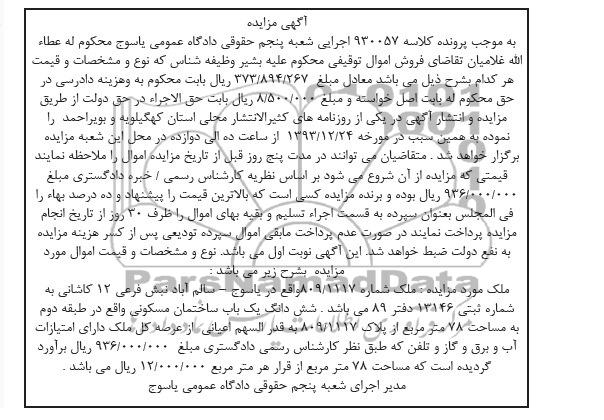 آگهی مزایده
به موجب پرونده کلاسه ۹۳۰۰۵۷ اجرایی شعبه پنجم حقوقی دادگاه عمومی یاسوج محکوم له عطاء
الله غلامیان تقاضای فروش اموال توقیفی محکوم علیه بشیر وظیفه شناس که نوع و مشخصات و قیمت
هر کدام بشرح ذیل می باشد معادل مبلغ ۳۷۳/۸۹۴/۲۶۷ ریال بابت محکوم به وهزینه دادرسی در
حق محکوم له بابت اصل خواسته و مبلغ ۸/۵۰۰/۰۰۰ ریال بابت حق الاجراء در حق دولت از طریق
مزایده و انتشار آگهی در یکی از روزنامه های کثیرالانتشار محلی استان کهگیلویه و بویراحمد را
نموده به همین سبب در مورخه ۱۳۹۳/۱۲/۲۴ از ساعت ده الی دوازده در محل این شعبه مزایده
برگزار خواهد شد . متقاضیان می توانند در مدت پنج روز قبل از تاریخ مزایده اموال را ملاحظه نمایند
قیمتی که مزایده از آن شروع می شود بر اساس نظریه کارشناس رسمی / خبره دادگستری مبلغ
۹۳۶/۰۰۰/۰۰۰ ریال بوده و برنده مزایده کسی است که بالاترین قیمت را پیشنهاد و ده درصد بهاء را
فی المجلس بعنوان سپرده به قسمت اجراء تسلیم و بقیه بهای اموال را ظرف ۳۰ روز از تاریخ انجام
مزایده پرداخت نمایند در صورت عدم پرداخت مابقی اموال سپرده تودیعی پس از کسر هزینه مزایده
به نفع دولت ضبط خواهد شد. این آگهی نوبت اول می باشد. نوع و مشخصات و قیمت اموال مورد
مزایده بشرح زیر می باشد :
ملک مورد مزایده : ملک شماره ۸۰۹/۱۱۱۷واقع در یاسوج – سالم آباد نبش فرعی ۱۲ کاشانی به
شماره ثبتی ۱۳۱۴۶ دفتر ۸۹ می باشد . شش دانگ یک باب ساختمان مسکونی واقع در طبقه دوم
به مساحت ۷۸ متر مربع از پلاک ۸۰۹/۱۱۱۷ به قدر السهم اعیانی از عرصه کل ملک دارای امتیازات
آب و برق و گاز و تلفن که طبق نظر کارشناس رسمی دادگستری مبلغ ۹۳۶/۰۰۰/۰۰۰ ریال برآورد
گردیده است که مساحت ۷۸ متر مربع از قرار هر متر مربع ۱۲/۰۰۰/۰۰۰ ریال می باشد .
مدیر اجرای شعبه پنجم حقوقی دادگاه عمومی یاسوج
ParsNamadData